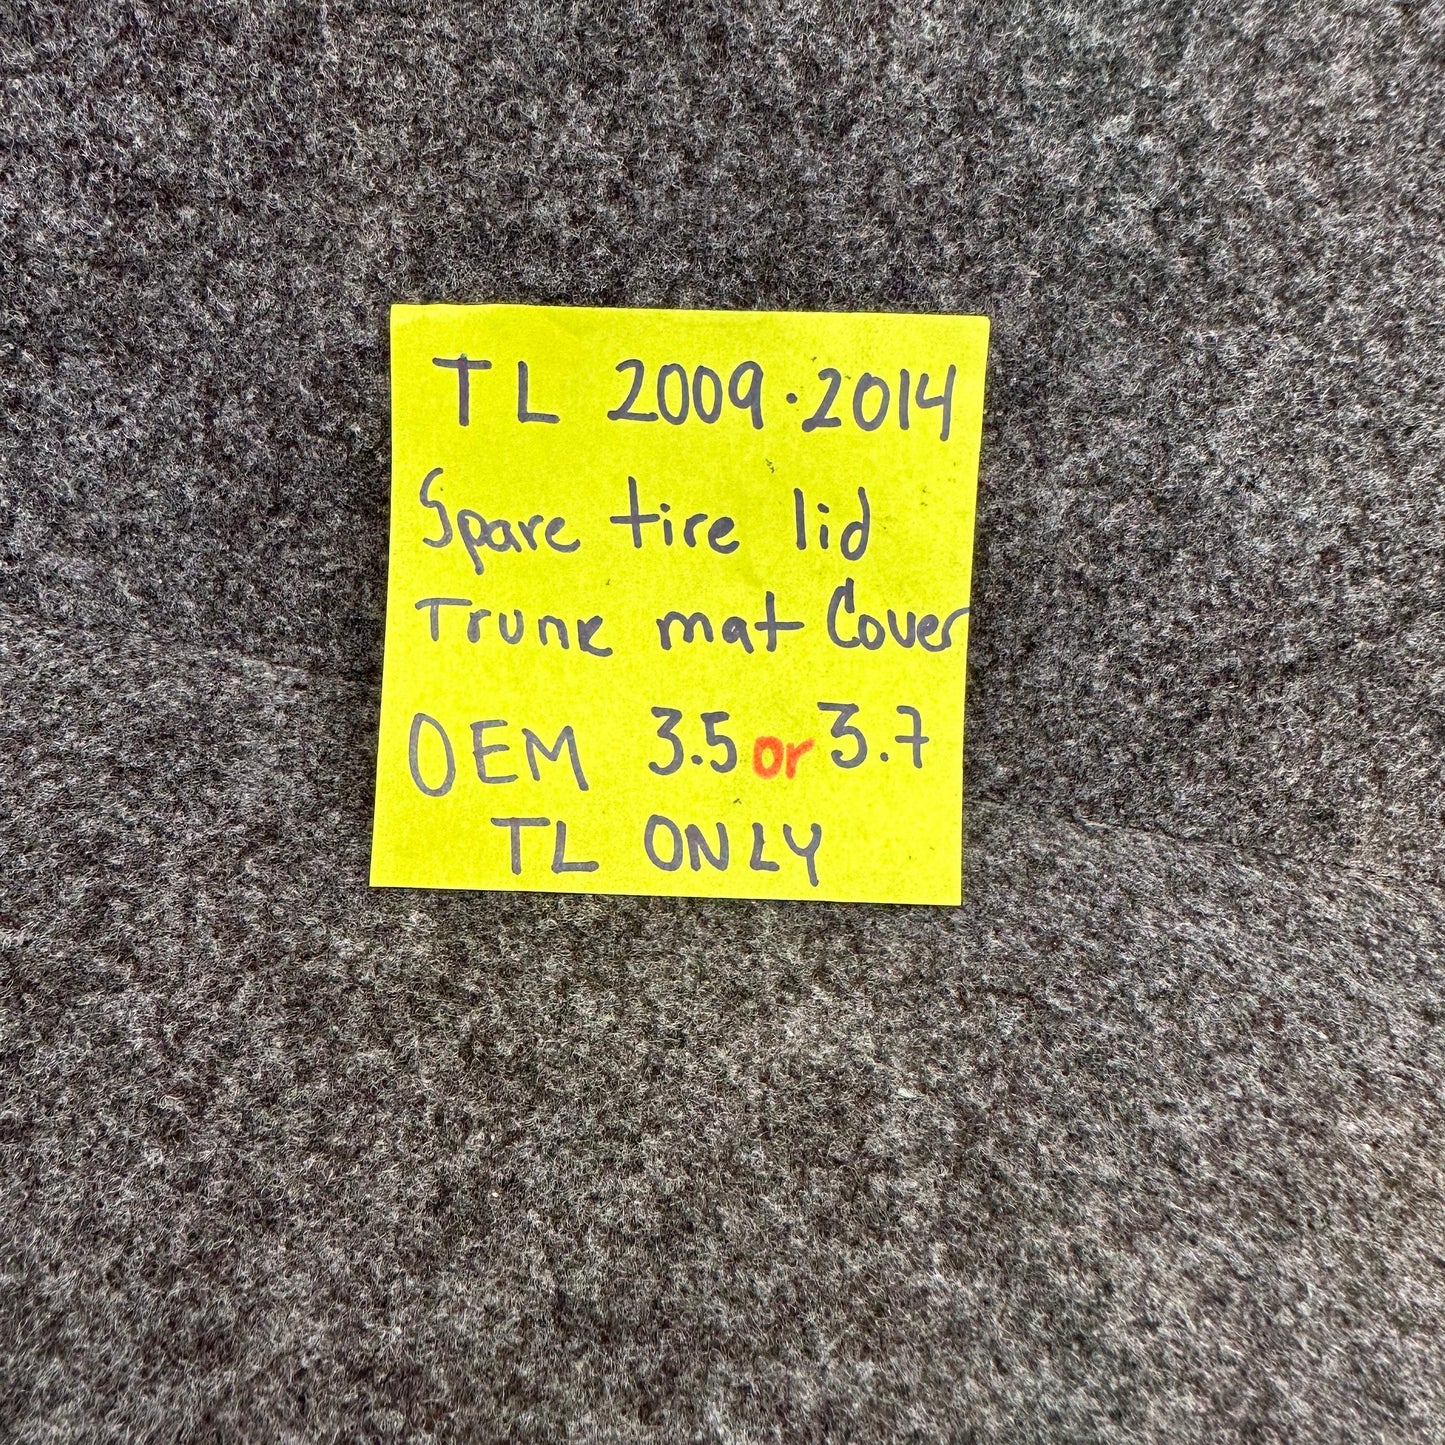 TL 2009.2014
Spare tire lid
Trunk mat Cover
OEM 3.5 or 3.7
TL ONLY